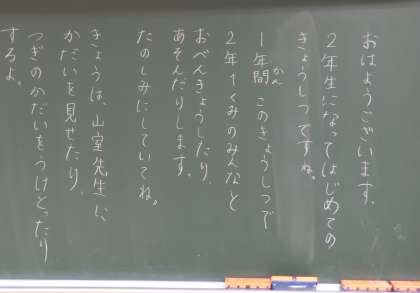 おはようございます。
2年生になってはじめての
きょうしつですね。
1年間かん このきょうしつで
2年1くみのみんなと
おべんきょうしたり、
あそんだりします。
たのしみにしていてね。
きょうは、山室先生に、
かだいを見せたり、
つぎのかだいをうけとったり
するよ。